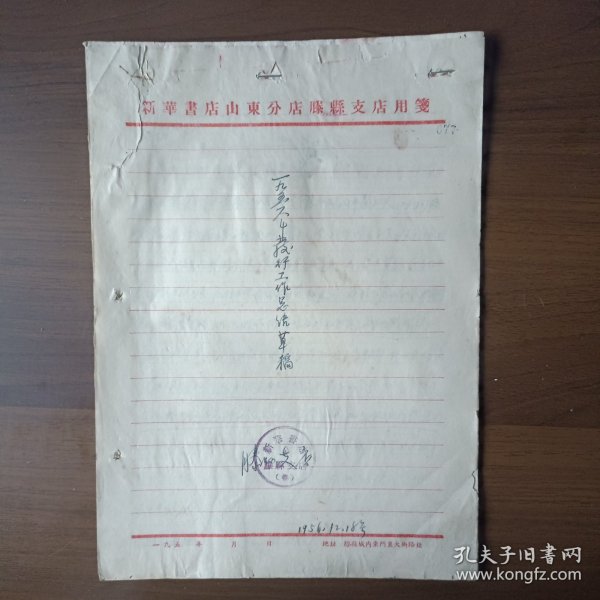 新華書店山東分店滕縣支店用箋
一九五六年發行工作总结草稿
滕县支店
1956.12.18号
一九五 年 月 日
地址 滕縣城内東門裏大街路北
孔夫子旧书网
www.kongfz.com